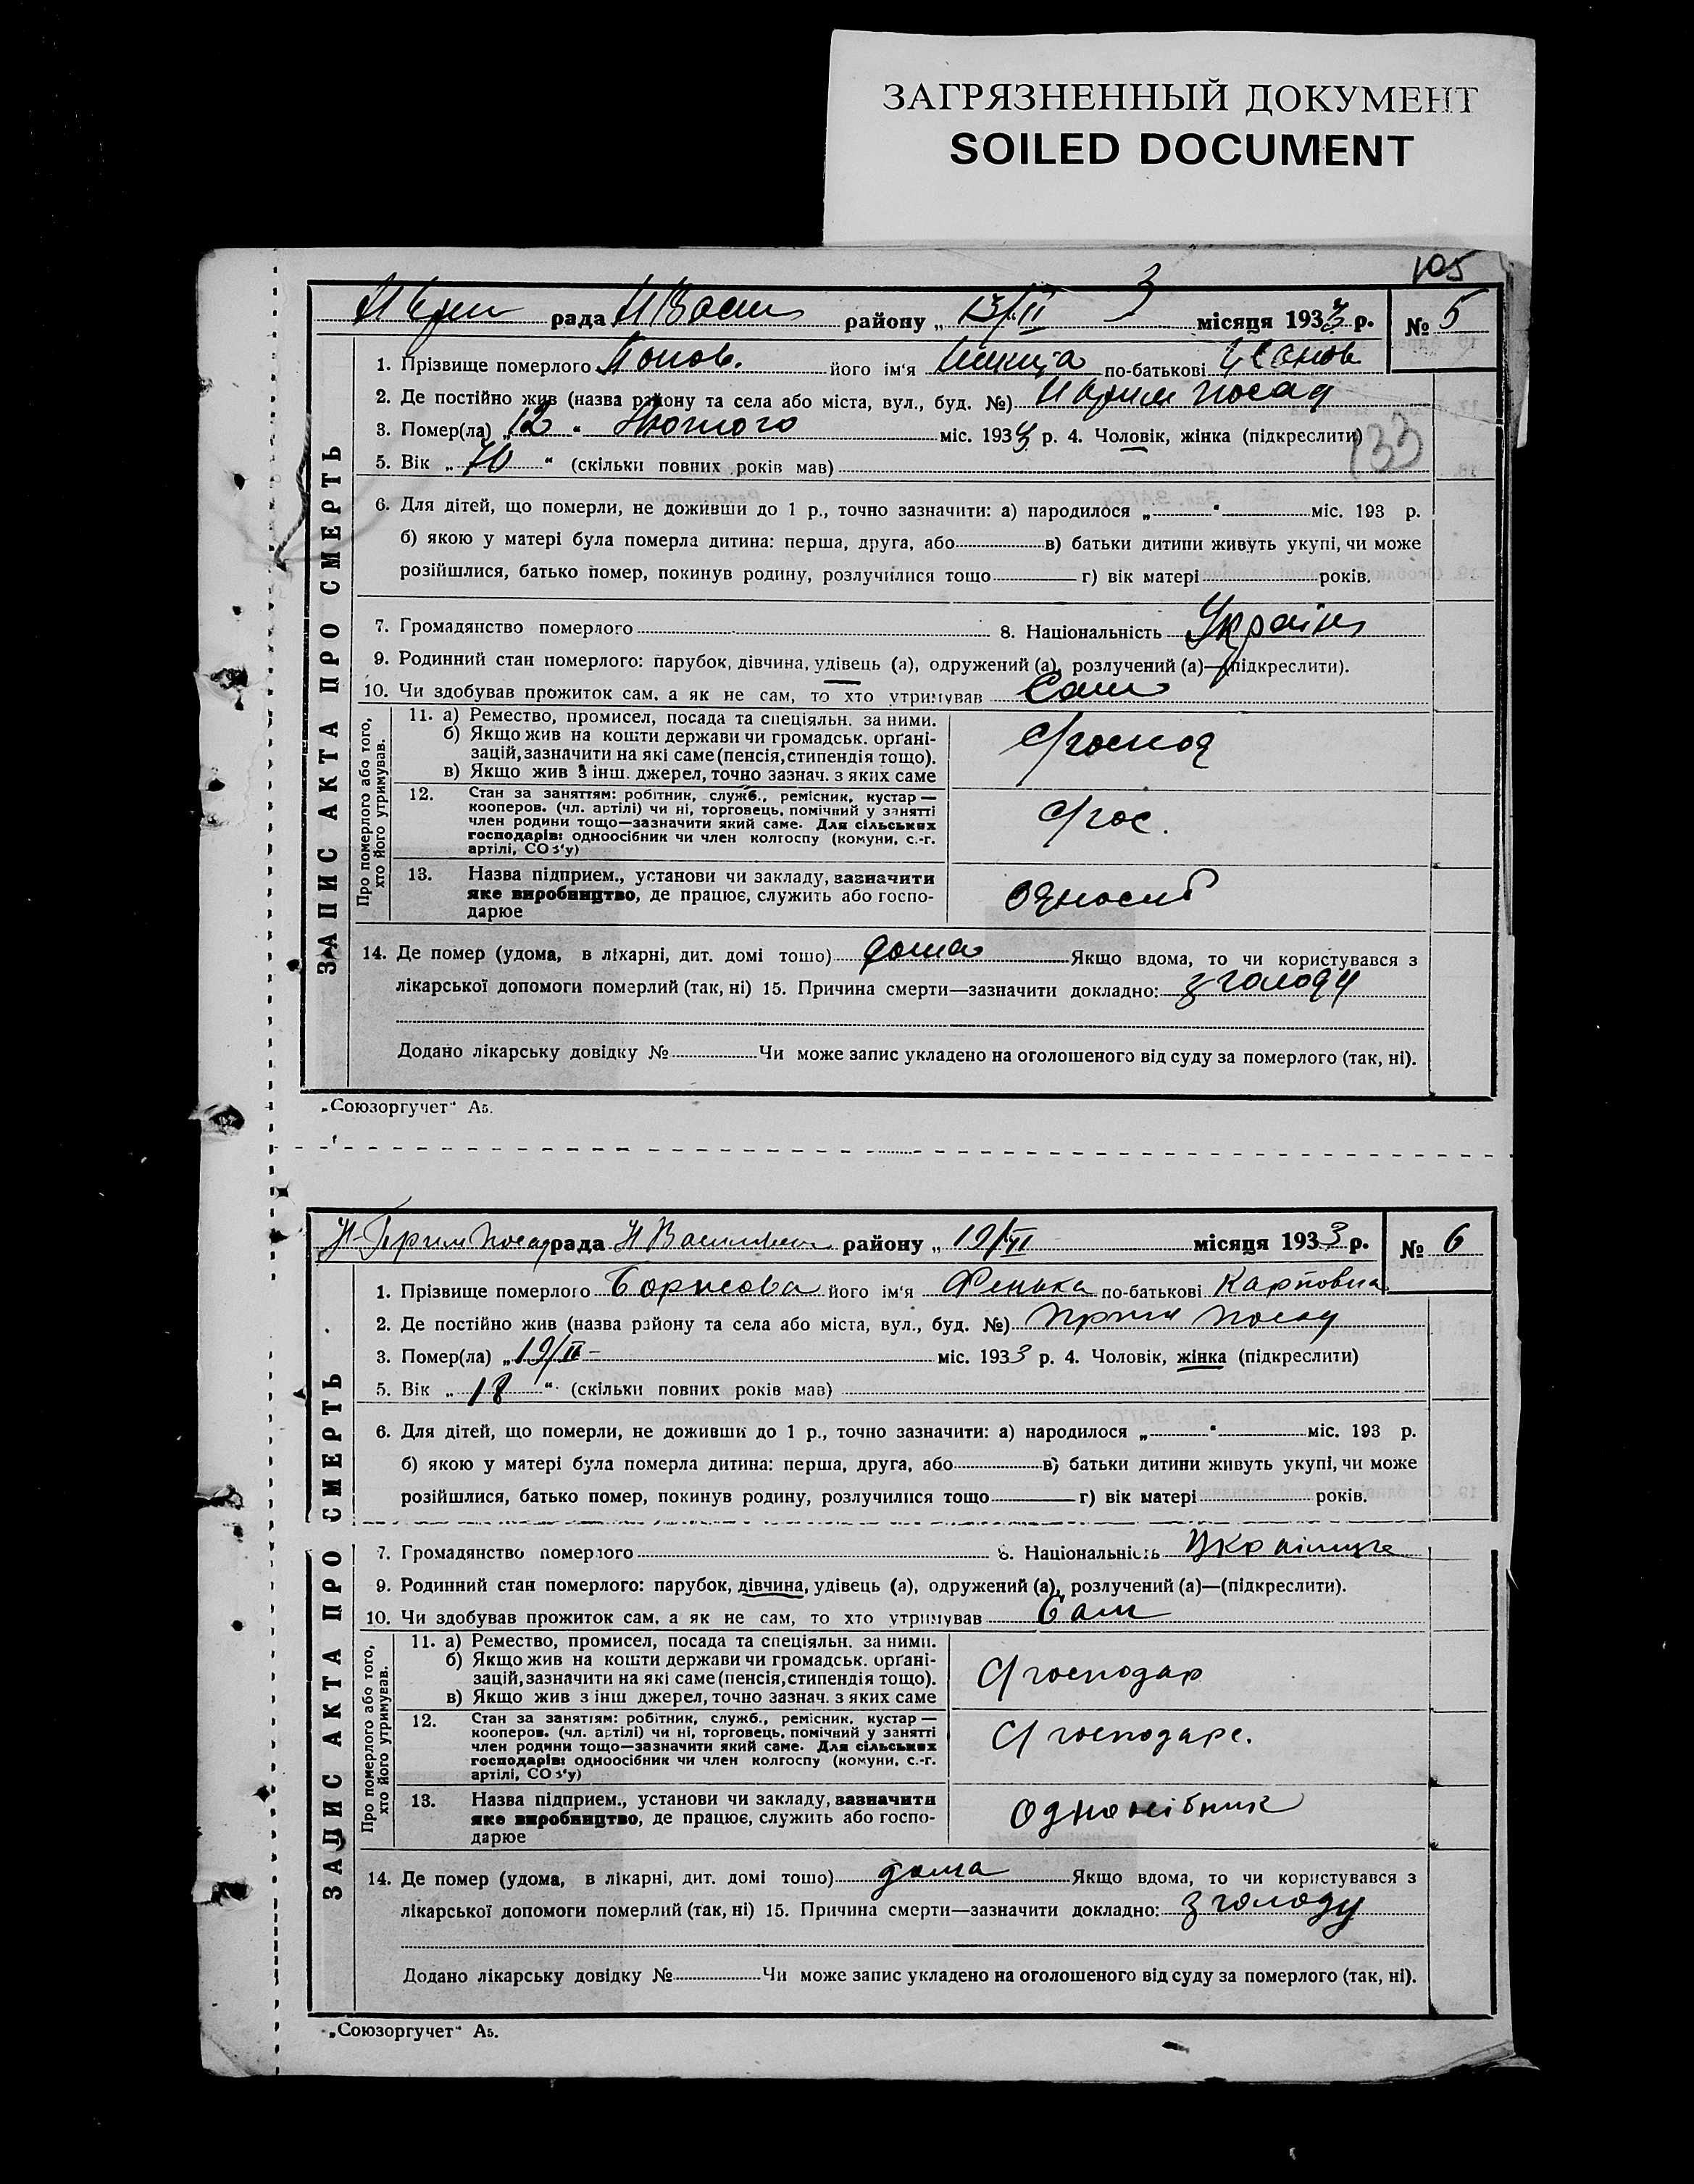 ЗАГРЯЗНЕННЫЙ ДОКУМЕНТ
SOILED DOCUMENT
105
рада районy „ 13/II 3 місяця 1933 р. № 5
ЗАПИС АКТА ПРО СМЕРТЬ
1. Прізвище померлого Попов. його ім'я Микита по-батькові Іванов
2. Де постійно жив (назва району та села або міста, вул., буд. №) посад
3. Помер(ла) „ 12 “ Лютого міс. 1933 р. 4. Чоловік, жінка (підкреслити)
133
5. Вік „ 70 “ (скільки повних років мав)
6. Для дітей, що померли, не доживши до 1 р., точно зазначити: а) народилося „ “ міс. 193 р.
б) якою у матері була померла дитина: перша, друга, або в) батьки дитини живуть укупі, чи може
розійшлися, батько помер, покинув родину, розлучилися тощо г) вік матері років.
7. Громадянство померлого 8. Національність Україн
9. Родинний стан померлого: парубок, дівчина, удівець (а), одружений (а), розлучений (а)—(підкреслити).
10. Чи здобував прожиток сам, а як не сам, то хто утримував Сам
Про померлого або того, хто його утримував.
11. а) Ремество, промисел, посада та спеціяльн. за ними.
б) Якщо жив на кошти держави чи громадськ. орґані-
зацій, зазначити на які саме (пенсія, стипендія тощо).
в) Якщо жив з інш. джерел, точно зазнач. з яких саме
с/господ
12. Стан за заняттям: робітник, служб., ремісник, кустар —
кооперов. (чл. артілі) чи ні, торговець, помічний у занятті
член родини тощо—зазначити який саме. Для сільських
господарів: одноосібник чи член колгоспу (комуни, с.-г.
артілі, СОЗ'у)
с/гос.
13. Назва підприєм., установи чи закладу, зазначити
яке виробництво, де працює, служить або госпо-
дарює
одноосіб
14. Де помер (удома, в лікарні, дит. домі тощо) дома Якщо вдома, то чи користувався з
лікарської допомоги померлий (так, ні) 15. Причина смерти—зазначити докладно: з голоду
Додано лікарську довідку № Чи може запис укладено на оголошеного від суду за померлого (так, ні).
„Союзоргучет“ А5.
рада районy „ 19/II місяця 1933 р. № 6
ЗАПИС АКТА ПРО СМЕРТЬ
1. Прізвище померлого Борисова його ім'я Фенька по-батькові Карповна
2. Де постійно жив (назва району та села або міста, вул., буд. №) посад
3. Помер(ла) „ 19/II - міс. 1933 р. 4. Чоловік, жінка (підкреслити)
5. Вік „ 18 “ (скільки повних років мав)
6. Для дітей, що померли, не доживши до 1 р., точно зазначити: а) народилося „ “ міс. 193 р.
б) якою у матері була померла дитина: перша, друга, або в) батьки дитини живуть укупі, чи може
розійшлися, батько помер, покинув родину, розлучилися тощо г) вік матері років.
7. Громадянство померлого 8. Національність
9. Родинний стан померлого: парубок, дівчина, удівець (а), одружений (а), розлучений (а)—(підкреслити).
10. Чи здобував прожиток сам, а як не сам, то хто утримував Сам
Про померлого або того, хто його утримував.
11. а) Ремество, промисел, посада та спеціяльн. за ними.
б) Якщо жив на кошти держави чи громадськ. орґані-
зацій, зазначити на які саме (пенсія, стипендія тощо).
в) Якщо жив з інш джерел, точно зазнач. з яких саме
с/господар
12. Стан за заняттям: робітник, служб., ремісник, кустар —
кооперов. (чл. артілі) чи ні, торговець, помічний у занятті
член родини тощо—зазначити який саме. Для сільських
господарів: одноосібник чи член колгоспу (комуни, с.-г.
артілі, СОЗ'у)
с/господарс.
13. Назва підприєм., установи чи закладу, зазначити
яке виробництво, де працює, служить або госпо-
дарює
одноосібник
14. Де помер (удома, в лікарні, дит. домі тощо) дома Якщо вдома, то чи користувався з
лікарської допомоги померлий (так, ні) 15. Причина смерти—зазначити докладно: з голоду
Додано лікарську довідку № Чи може запис укладено на оголошеного від суду за померлого (так, ні).
„Союзоргучет“ А5.